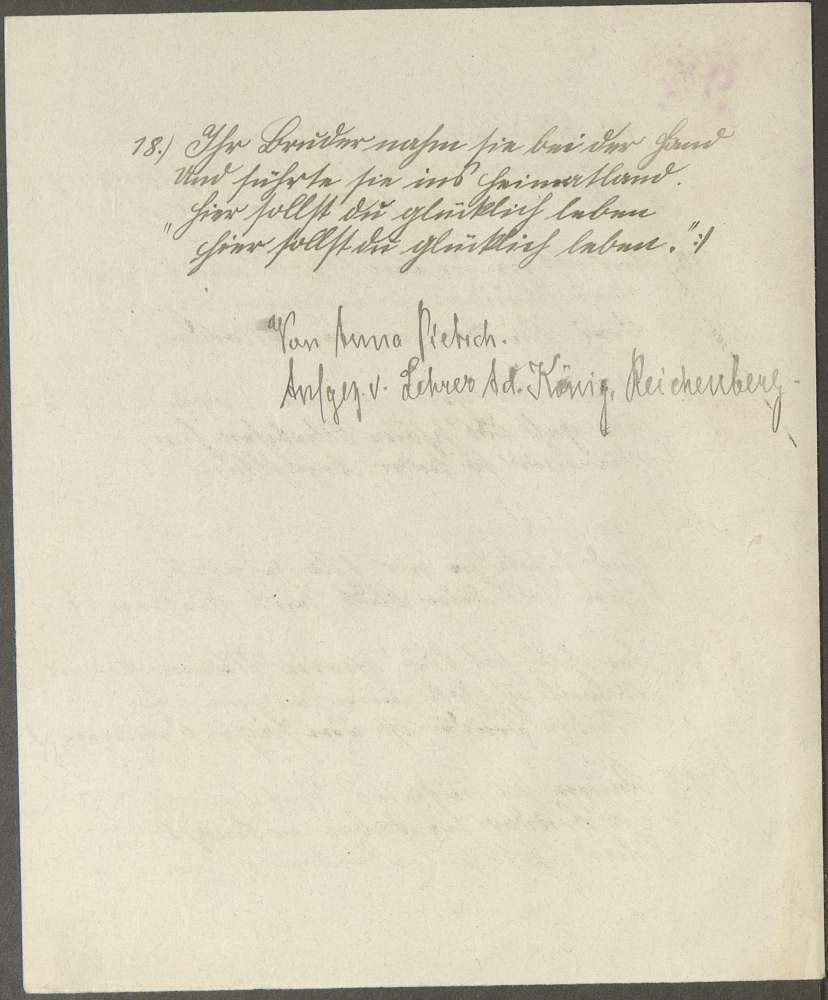 18.) Ihr Bruder nahm sie bei der Hand
Und führte sie ins Heimatland.
Hier sollst du glücklich leben
" Hier sollst du glücklich leben." :/
Von Anna Pietsch.
Aufgez. v. Lehrer Ad. König, Reichenberg.